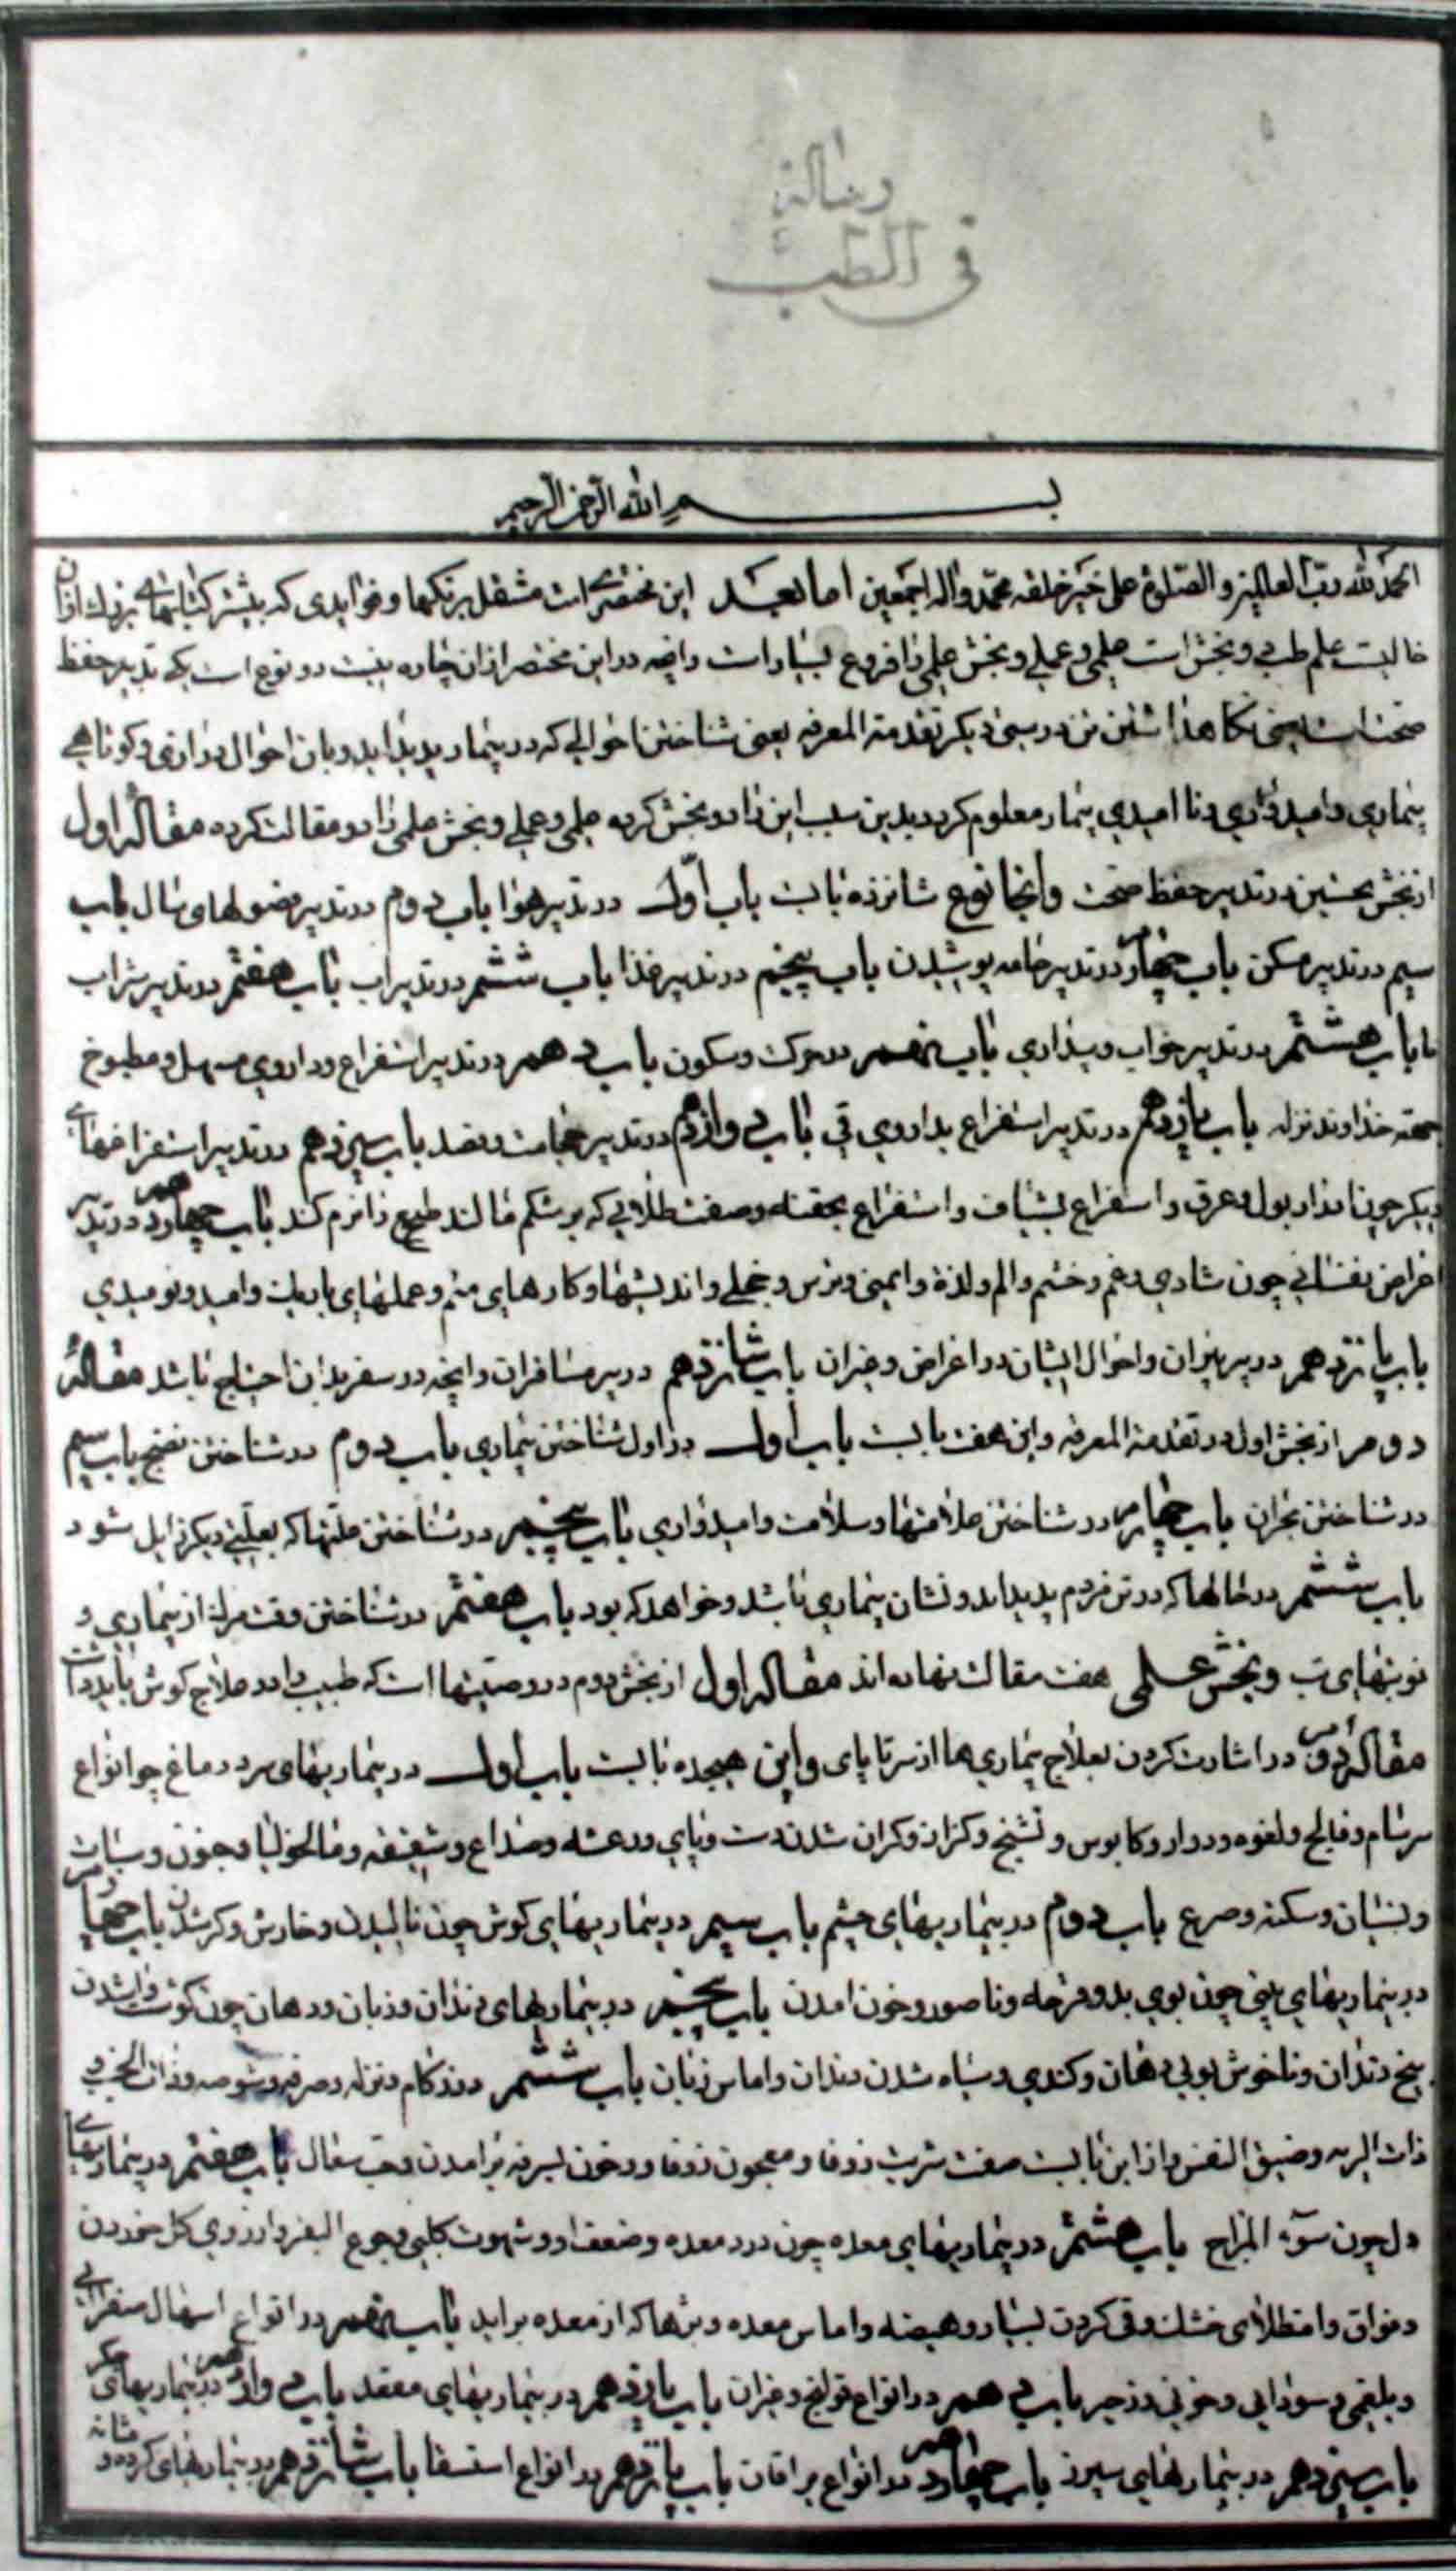 رسالة
فی الطب
بسم الله الرحمن الرحیم
الحمد لله رب العالمین و الصلوة علی خیر خلقه محمد و اله اجمعین اما بعد این مختصریست مشتمل بر نکتها و فوایدی که بیشتر کتابهای بزرك ازان
خالیست علم طب دو بخش است علمی و عملی و بخش علمی را فروع بسیار است و انچه در این مختصر ازان چاره نیست دو نوع است یکی تدبیر حفظ
صحت است یعنی نکاهداشتن تن درستی دیکر تقدمة المعرفه یعنی شناختن احوالی که در بیمار پدید اید و بان احوال درازی و کوتاهی
بیماری و امیدواری و نا امیدی بیمار معلوم کردد بدین سبب این را دو بخش کرده علمی و عملی و بخش علمی را دو مقالت کرده مقالۀ اول
از بخش نخستین در تدبیر حفظ صحت و اینجا نوع شانزده بابست باب اول در تدبیر هوا باب دوم در تدبیر فصولهای سال باب
سیم در تدبیر مسکن باب چهارم در تدبیر جامه پوشیدن باب پنجم در تدبیر غذا باب ششم در تدبیر اب باب هفتم در تدبیر شراب
باب هشتم در تدبیر خواب و بیداری باب نهم در حرکت و سکون باب دهم در تدبیر استفراغ و داروی مسهل و مطبوخ
جهته خداوند نزله باب یازدهم در تدبیر استفراغ بداروی قی باب دوازدهم در تدبیر حجامت و فصد باب سیزدهم در تدبیر استفراغهای
دیکر چون ادرار بول و عرق و استفراغ بشیاف و استفراغ بحقنه و صفت طلایی که بر شکم مالند طبع را نرم کند باب چهاردهم در تدبیر
اعراض نفسانی چون شادی و غم و خشم و الم و لذة و ایمنی و ترس و خجلی و اندیشها و کارهای مهم و عملهای باریك و امید و نومیدی
باب پانزدهم در پیر پیران و احوال ایشان در اعراض و جزان باب شانزدهم در پیر مسافران و انچه در سفر بدان احتیاج باشد مقالۀ
دوم از بخش اول در تقدمة المعرفه و این هفت بابست باب اول در اول شناختن بیماری باب دوم در شناختن نضج باب سیم
در شناختن بحران باب چهارم در شناختن علامتها و سلامت و امیدواری باب پنجم در شناختن علتها که بعلتی دیکر زایل شود
باب ششم در حالها که در تن مردم پدید اید و نشان بیماری باشد و خواهد که بود باب هفتم در شناختن وقت مرك از بیماری و
نوبتهای تب و بخش عملی هفت مقالت نهاده اند مقالۀ اول از بخش دوم در وصیتها است که طبیب را در علاج کوش باید داشت
مقالۀ دوم در اشارت کردن بعلاج بیماری ها از سر تا پای و این هیجده بابست باب اول در بیماریهای سر و دماغ چو انواع
سرسام و فالج و لقوه و دوار و کابوس و تشنج و کزاز و کران شدن دست و پای و رعشه و صداع و شقیقه و مالخولیا و جنون و سبات
و نسیان و سکته و صرع باب دوم در بیماریهای چشم باب سیم در بیماریهای کوش چون نالیدن و خارش و کر شدن باب چهارم
در بیماریهای بینی چون بوی بد و قرحه و ناصور و خون امدن باب پنجم در بیماریهای دندان و زبان و دهان چون کوشت شدن
بیخ دندان و ناخوش بویی دهان و کندی و سیاه شدن دندان و اماس زبان باب ششم در زکام و نزله و سرفه و شوصه و ذات الجنب و
ذات الریه و ضیق النفس و از این بابست صفت شربت زوفا و معجون زوفا و خون بسرفه برامدن و حب سعال باب هفتم در بیماریهای
دل چون سوء المزاج باب هشتم در بیماریهای معده چون درد معده و ضعف او و شهوت کلبی و جوع البقر و ارزوی کل خوردن
و فواق و امتلاء خشك و قی کردن بسیار و هیضه و اماس معده و بثرها که از معده براید باب نهم در انواع اسهال صفرایی
و بلغمی و سودایی و خونی و زحیر باب دهم در انواع قولنج و جزان باب یازدهم در بیماریهای مقعد باب دوازدهم در بیماریهای جکر
باب سیزدهم در بیماریهای سپرز باب چهاردهم در انواع یرقان باب پانزدهم در انواع استسقا باب شانزدهم در بیماریهای کرده و مثانه